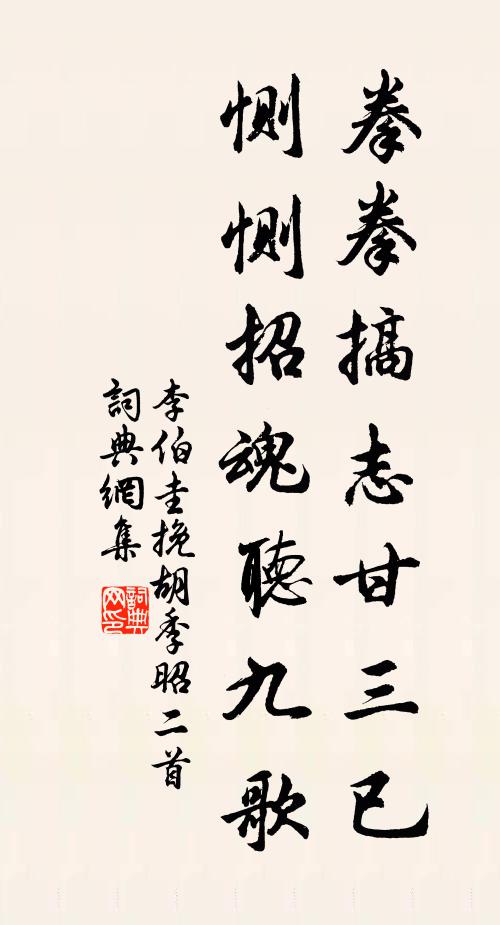 拳拳搞志甘三已
惻惻招魂聽九歌
李伯圭挽胡季昭二首
詞典網集
詞典网印